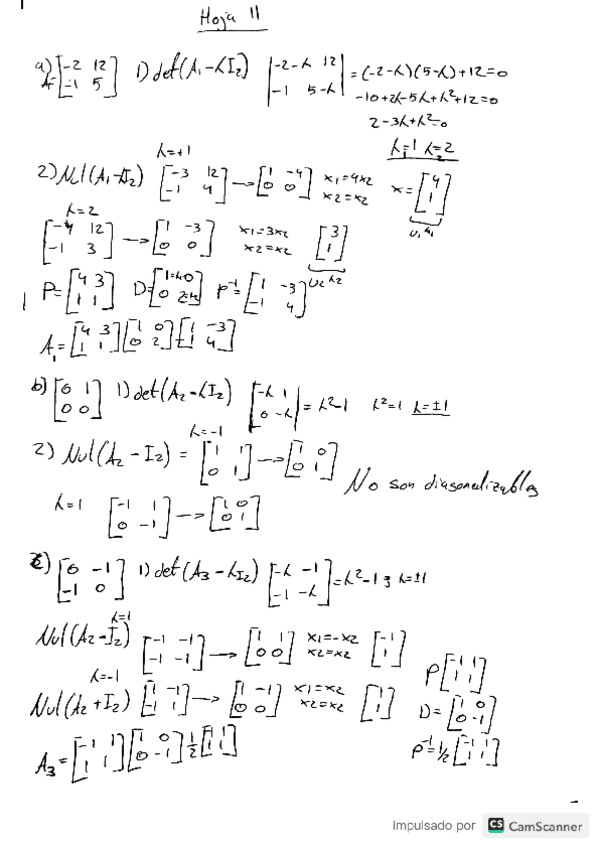 Hoja 11
a) A= [-2 12; -1 5] 1) det(A₁-λI₂) |-2-λ 12; -1 5-λ| = (-2-λ)(5-λ)+12=0
-10+2λ-5λ+λ²+12=0
2-3λ+λ²=0
λ₁=1 λ₂=2
λ=+1
2) Nul(A₁-λI₂) [-3 12; -1 4] → [1 -4; 0 0] x1=4x2 x2=x2 x=[4; 1]
λ=2
[-4 12; -1 3] → [1 -3; 0 0] x1=3x2 x2=x2 [3; 1]
P=[4 3; 1 1] D= P⁻¹=[1 -3; -1 4]
A₁=[4 3; 1 1][1 0; 0 2][1 -3; -1 4]
b) [0 1; 0 0] 1) det(A₂-λI₂) |-λ 1; 0 -λ| = λ²-1 λ²=1 λ=±1
λ=-1
2) Nul(A₂-I₂) = [1 1; 0 1] → [1 0; 0 1]
No son diagonalizables
λ=1 [-1 1; 0 -1] → [1 0; 0 1]
c) [0 -1; -1 0] 1) det(A₃-λI₂) [-λ -1; -1 -λ] = λ²-1 ; λ=±1
λ=1
Nul(A₂-I₂) [-1 -1; -1 -1] → [1 1; 0 0] x1=-x2 x2=x2 [-1; 1]
P[-1 1; 1 1]
λ=-1
Nul(A₂+I₂) [1 -1; -1 1] → [1 -1; 0 0] x1=x2 x2=x2 [1; 1]
D=[1 0; 0 -1]
A₃=[-1 1; 1 1][1 0; 0 -1] 1/2 [-1 1; 1 1]
P⁻¹=1/2 [-1 1; 1 1]
Impulsado por CS CamScanner